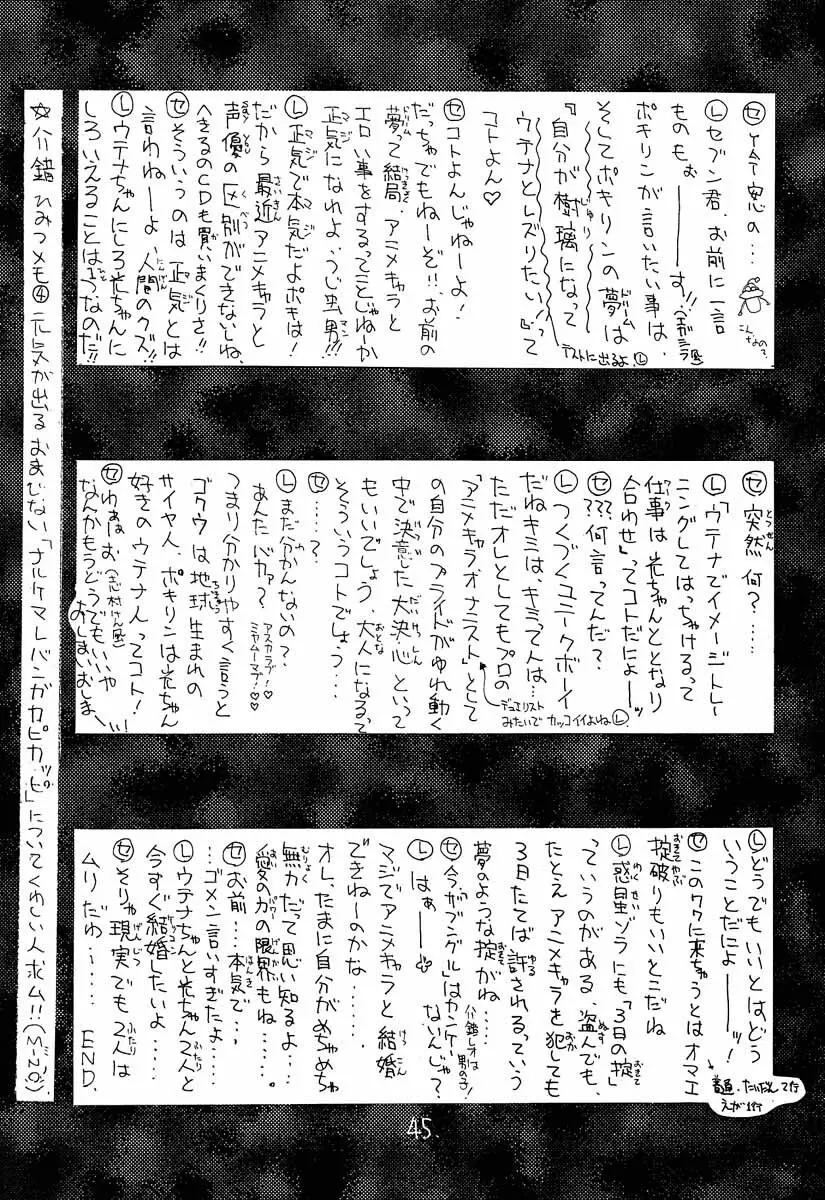 セ YAT窓の…
こんなもの?
Lセブン君、お前に一言
ものもぉーーす!!
ポキリンが言いたい事は、
そしてポキリンの夢は
『自分が樹璃になって
ウテナとレズりたい!』って
コトよん♡
テストに出るよ。L
セ コトよんじゃねーよ!
だっちゃでもねーぞ!!お前の
夢って結局、アニメキャラと
エロい事をするってことじゃねーか
正気になれよ、うじ虫男!!!
L 正気で本気だよポキは!
だから最近アニメキャラと
声優の区別ができないしね、
へきるのCDも買いまくりさ!!
セ そういうのは正気とは
言わねーよ、人間のクズ!!
L ウテナちゃんにしろ光ちゃんに
しろいえることは1つなのだ!!
セ 突然何?……
L「ウテナでイメージトレー
ニングしてはっちゃけるって
仕事は光ちゃんととなり
合わせ」ってコトだにょーッ
セ ???何言ってんだ?
L つくづくユニークボーイ
だねキミは、キミって人は…
ただオレとしてもプロの
「アニメキャラオナニスト」として
デュエリスト
みたいでカッコイイよねL
の自分のプライドがゆれ動く
中で決意した大決心といって
もいいでしょう、大人になるって
そういうコトでしょう…
セ ……?
L まだ分かんないの?
あんたバカァ?
アスカラブ!♡
ミヤムーマブ!♡♡
つまり分かりやすく言うと
ゴクウは地球生まれの
サイヤ人、ポキリンは光ちゃん
好きのウテナ人ってコト!
セ わぁはぉ(志村けん風)
なんかもうどうでもいいや
おしまいおしまい
L どうでもいいとはどう
いうことだにょーーッ!
セ このワクに来ちゃうとはオマエ
普通、たいだんって行
えが1行
掟破りもいいとこだね
L 惑星ゾラにも「3日の掟」
っていうのがある、盗んでも、
たとえアニメキャラを犯しても
3日たてば許されるっていう
夢のような掟がね…
セ 今「ザブングル」はカンケー
ないんじゃ?
L はぁーー
介錯Lオは
男の子!
マジでアニメキャラと結婚
できねーのかな……
オレ、たまに自分がめちゃめちゃ
無力だって思い知るよ…
愛の力の限界もね……。
セ お前…本気で…、
…ゴメン言いすぎたよ…
L ウテナちゃんと光ちゃん2人と
今すぐ結婚したいよ…
セ そりゃ現実でも2人は
ムリだゆ…… END.
☆介錯ひみつメモ④ 元気が出るおまじない「ナルケマレバンガカピカッピ」についてくわしい人求ム!!(M-ミズノ)
45.